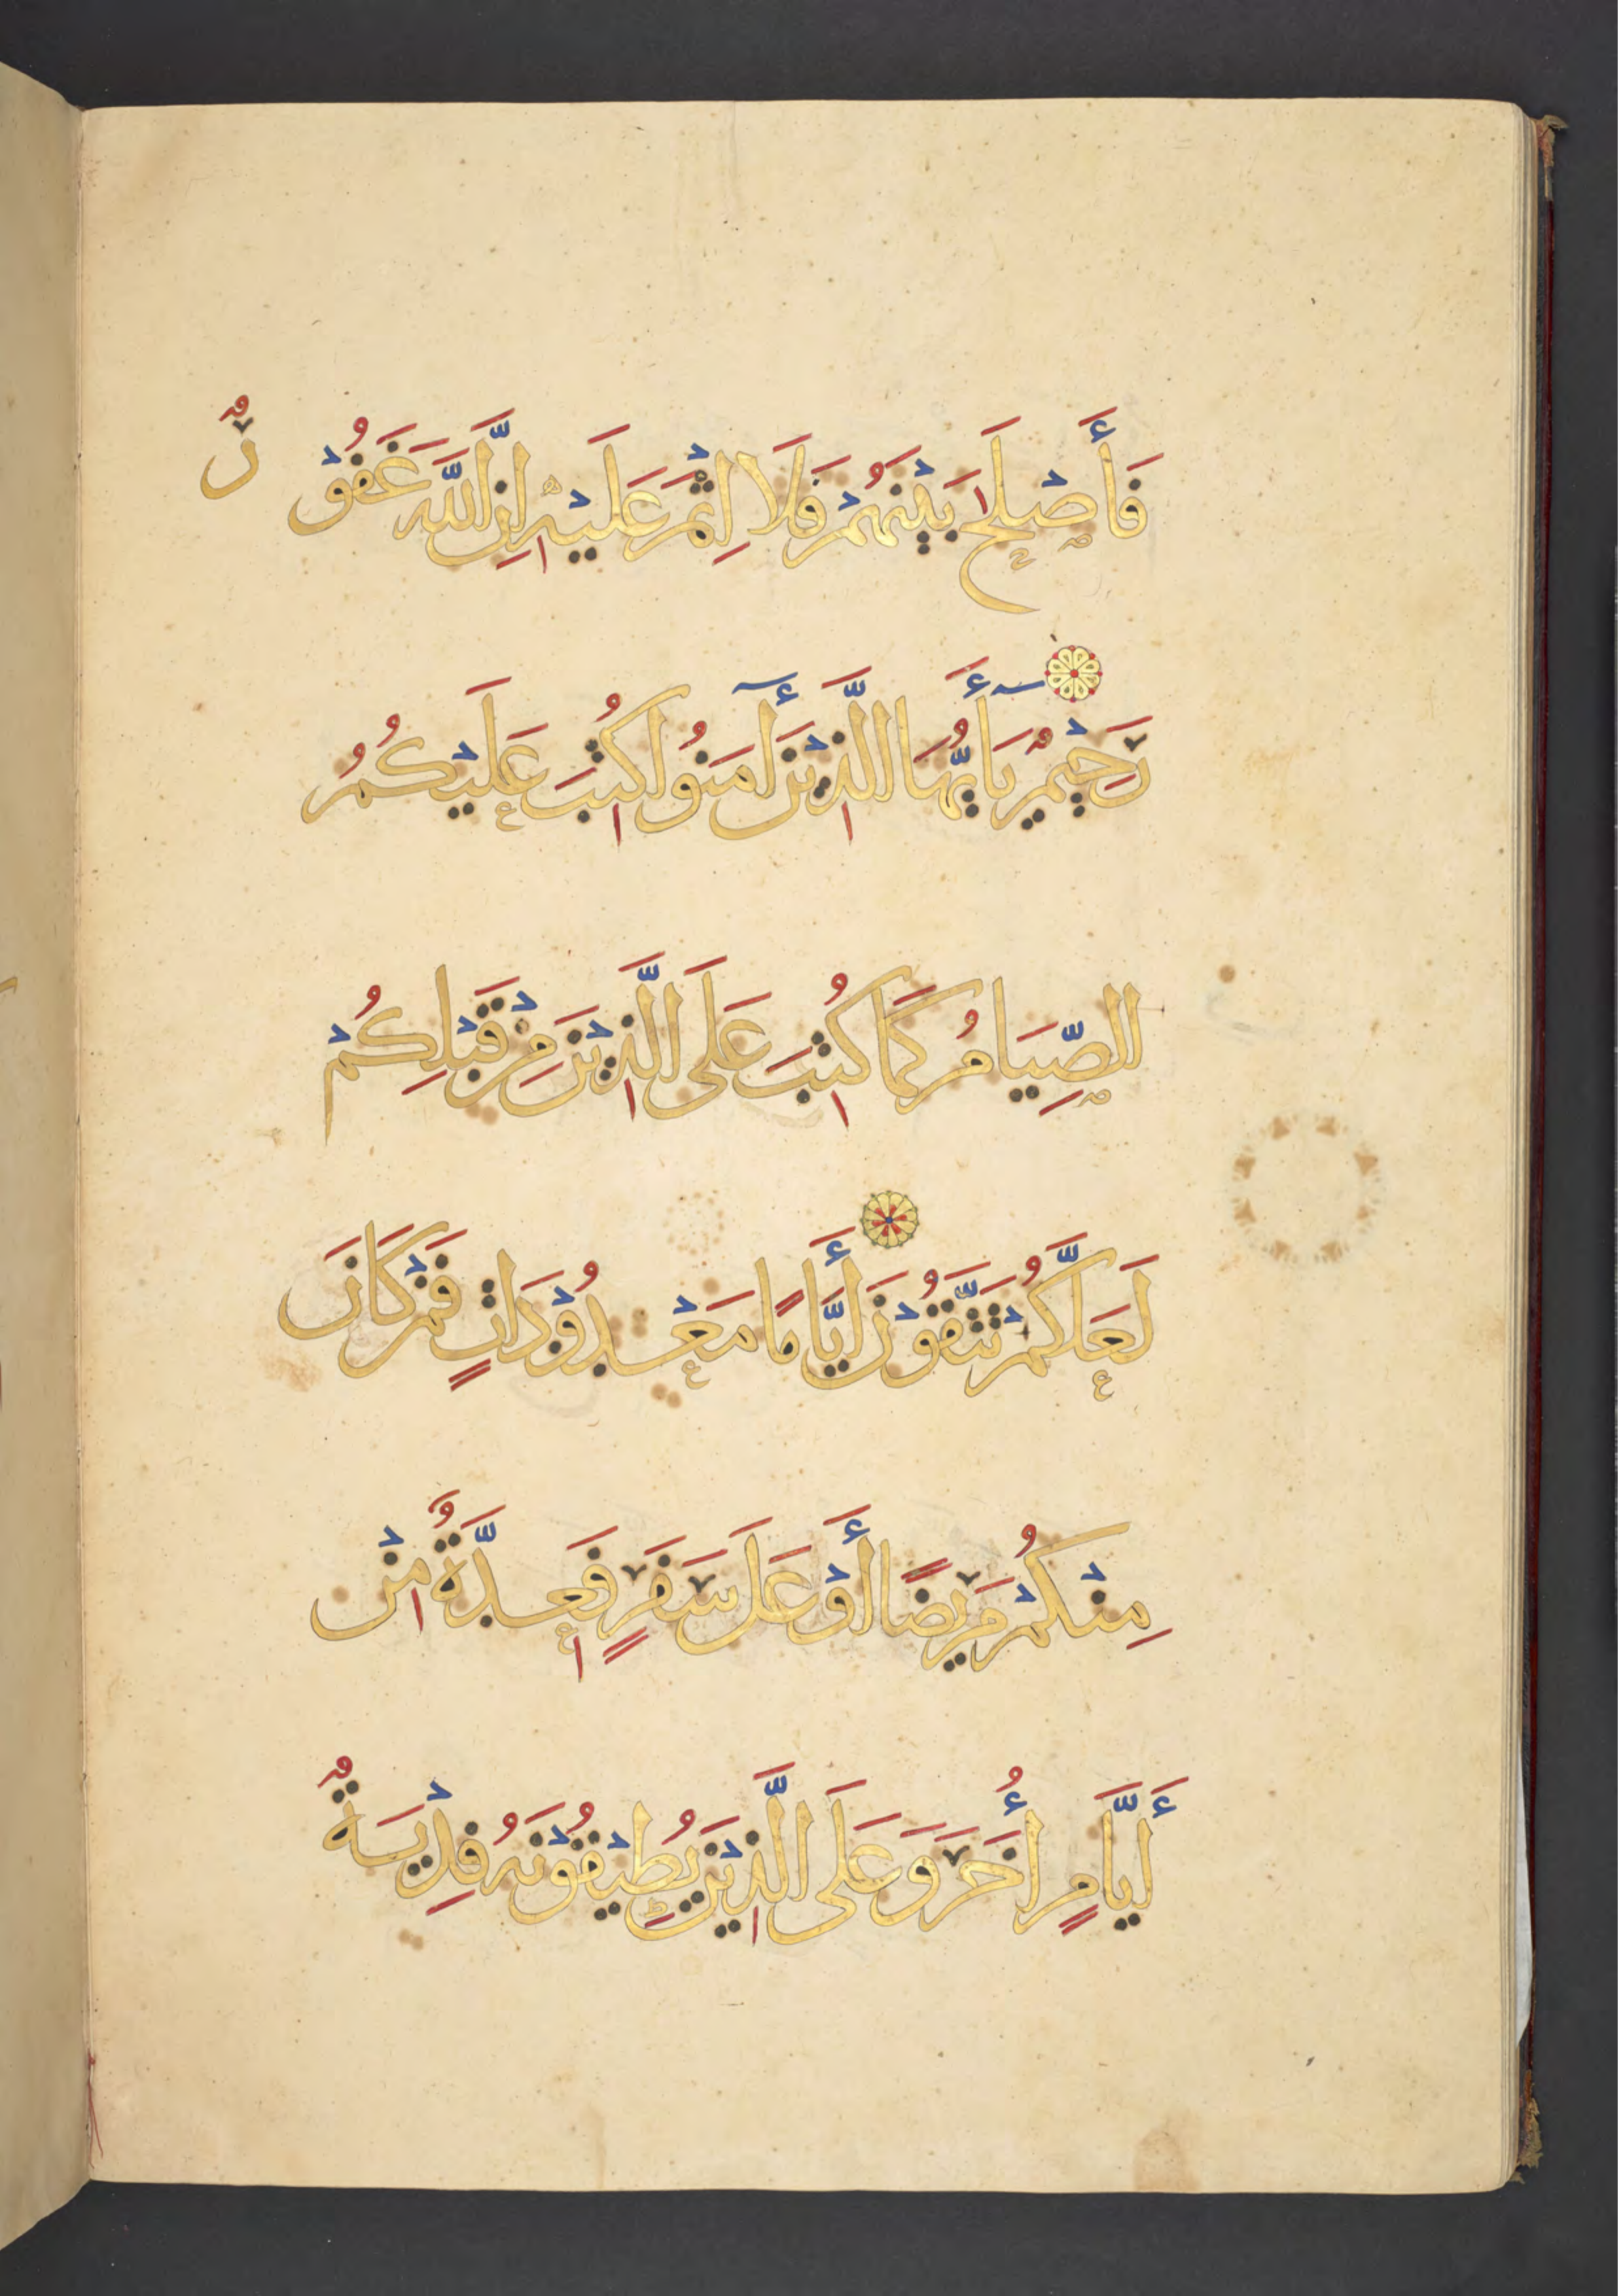 فَأَصْلَحَ بَيْنَهُمْ فَلَا إِثْمَ عَلَيْهِ إِنَّ اللَّهَ غَفُوْرٌ
رَحِيْمٌ يَا أَيُّهَا الَّذِيْنَ أَٓمَنُوا كُتِبَ عَلَيْكُمُ
الصِّيَامُ كَمَا كُتِبَ عَلَى الَّذِيْنَ مِنْ قَبْلِكُمْ
لَعَلَّكُمْ تَتَّقُوْنَ أَيَّامًا مَعْدُوْدَاتٍ فَمَنْ كَانَ
مِنْكُمْ مَرِيضًا أَوْ عَلَى سَفَرٍ فَعِدَّةٌ مِنْ
أَيَّامٍ أُخَرَ وَعَلَى الَّذِيْنَ يُطِيْقُوْنَهُ فِدْيَةٌ